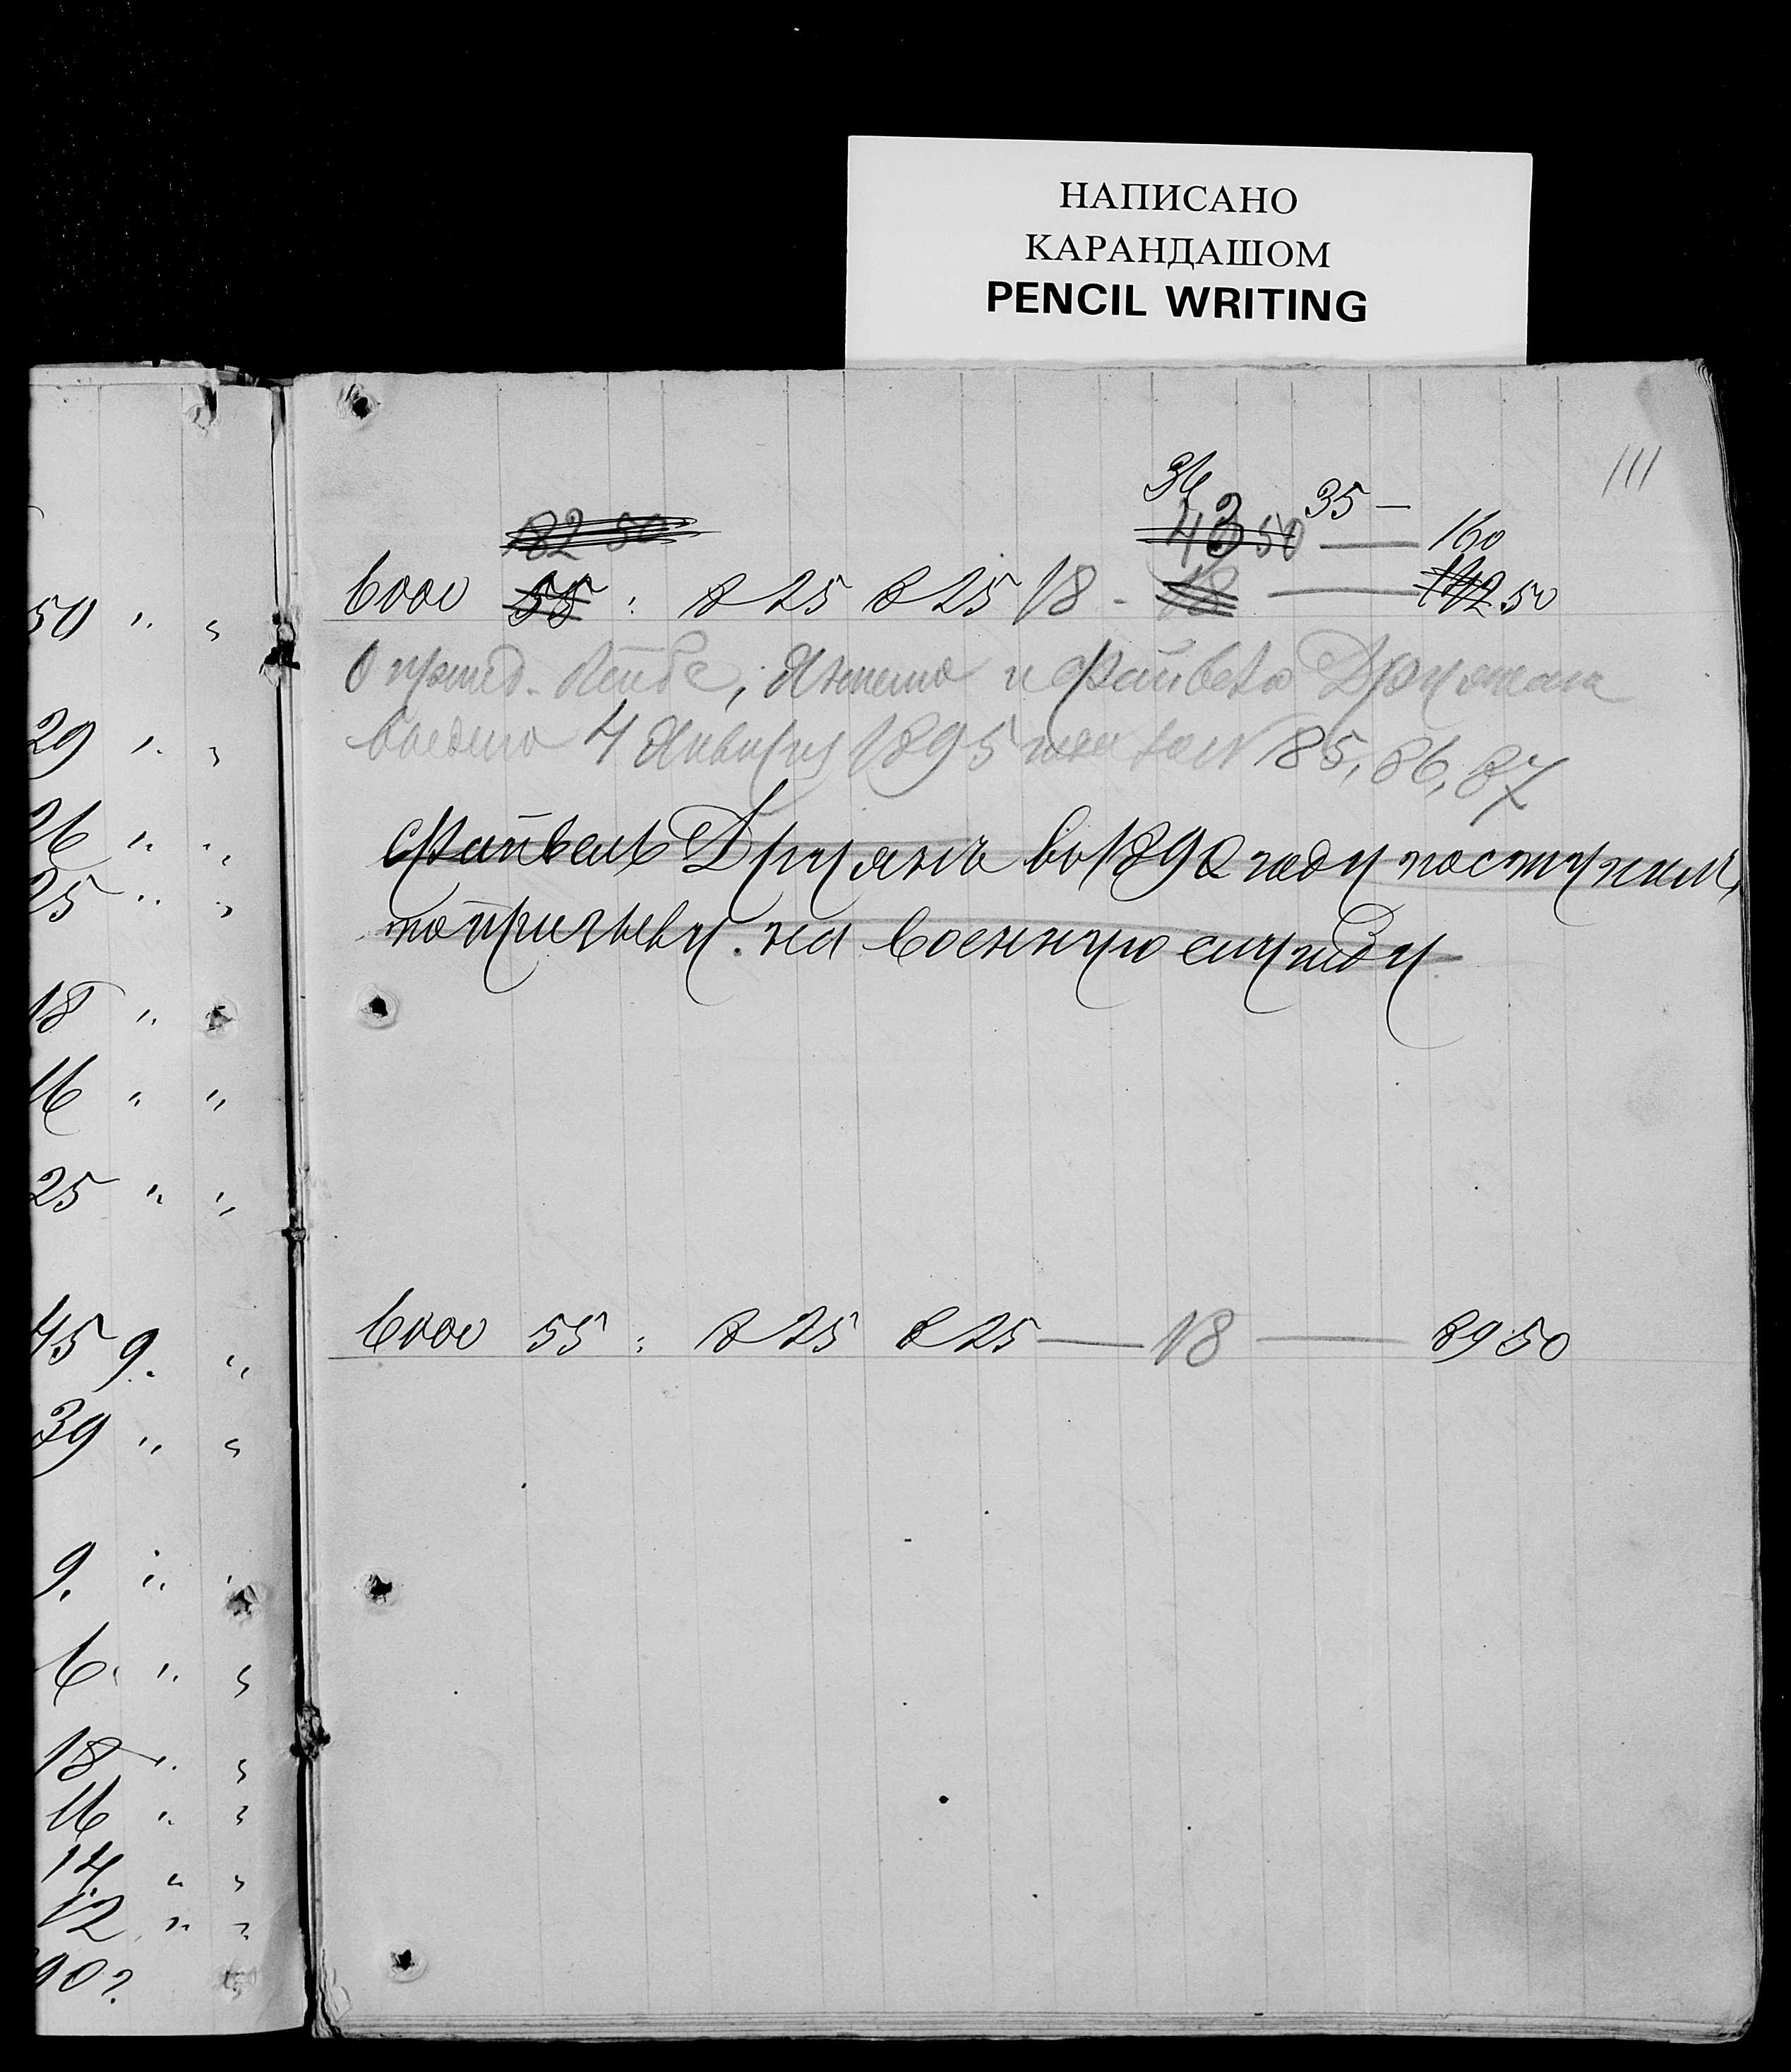 НАПИСАНО
КАРАНДАШОМ
PENCIL WRITING
111
36
35 —
82 50
43 50 — 160
6000 55 : 8 25 8 25 18 - 18 — 142 50
О Лейбе, и Файвеля
4 Января 1895 за № 85, 86, 87
Файвель Друянъ во 1892 году поступилъ
по призыву на военную службу
6000 55 : 8 25 8 25 — 18 — 89 50
50 " "
29 " "
26 " "
25 " "
18 "
16 " "
25 " "
45 9. "
39 " "
9. " "
6. " "
18 " "
16 " "
14 " "
12 " "
90?